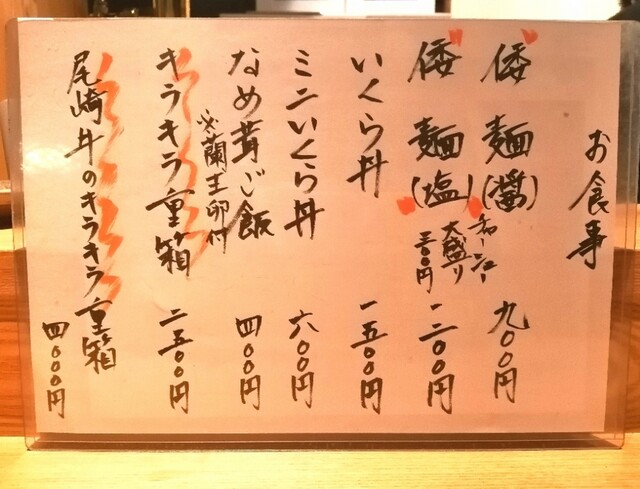 お食事
倭麺(醤) 九〇〇円
チャーシュー
大盛り
三〇〇円
倭麺(塩) 一二〇〇円
いくら丼 一五〇〇円
ミニいくら丼 六〇〇円
なめ茸ご飯 四〇〇円
※蘭王卵付
キラキラ重箱 二五〇〇円
尾崎牛のキラキラ重箱 四〇〇〇円